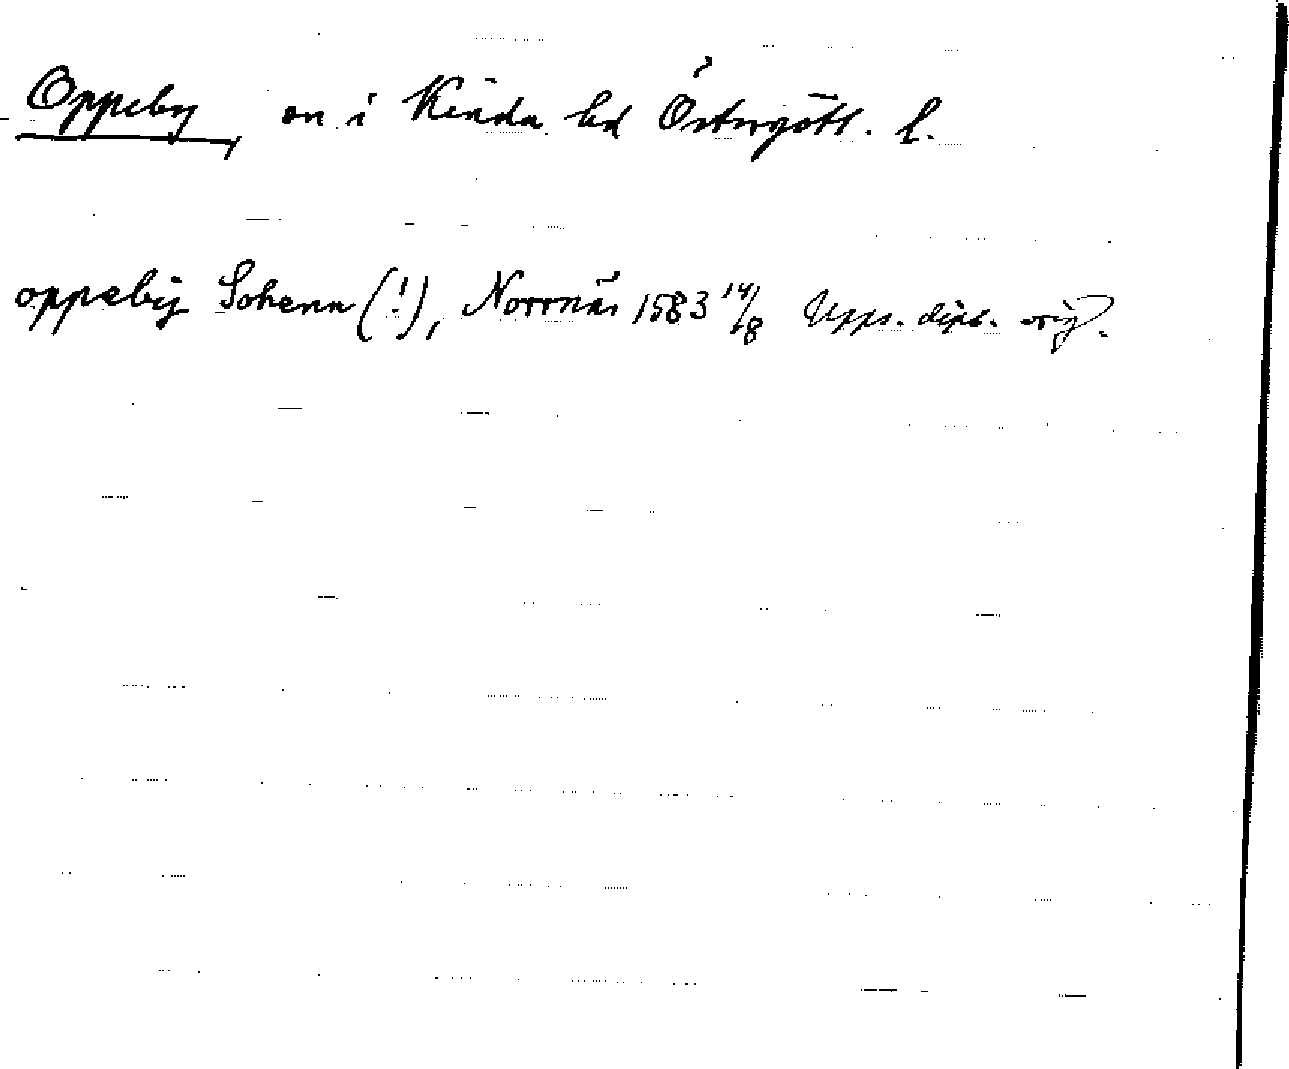 Oppeby, sn i Kinda hd Östergötl. l.
oppeby Sohenn (!), Norrnäs 1583 14/8 Upps. dipl. orig.